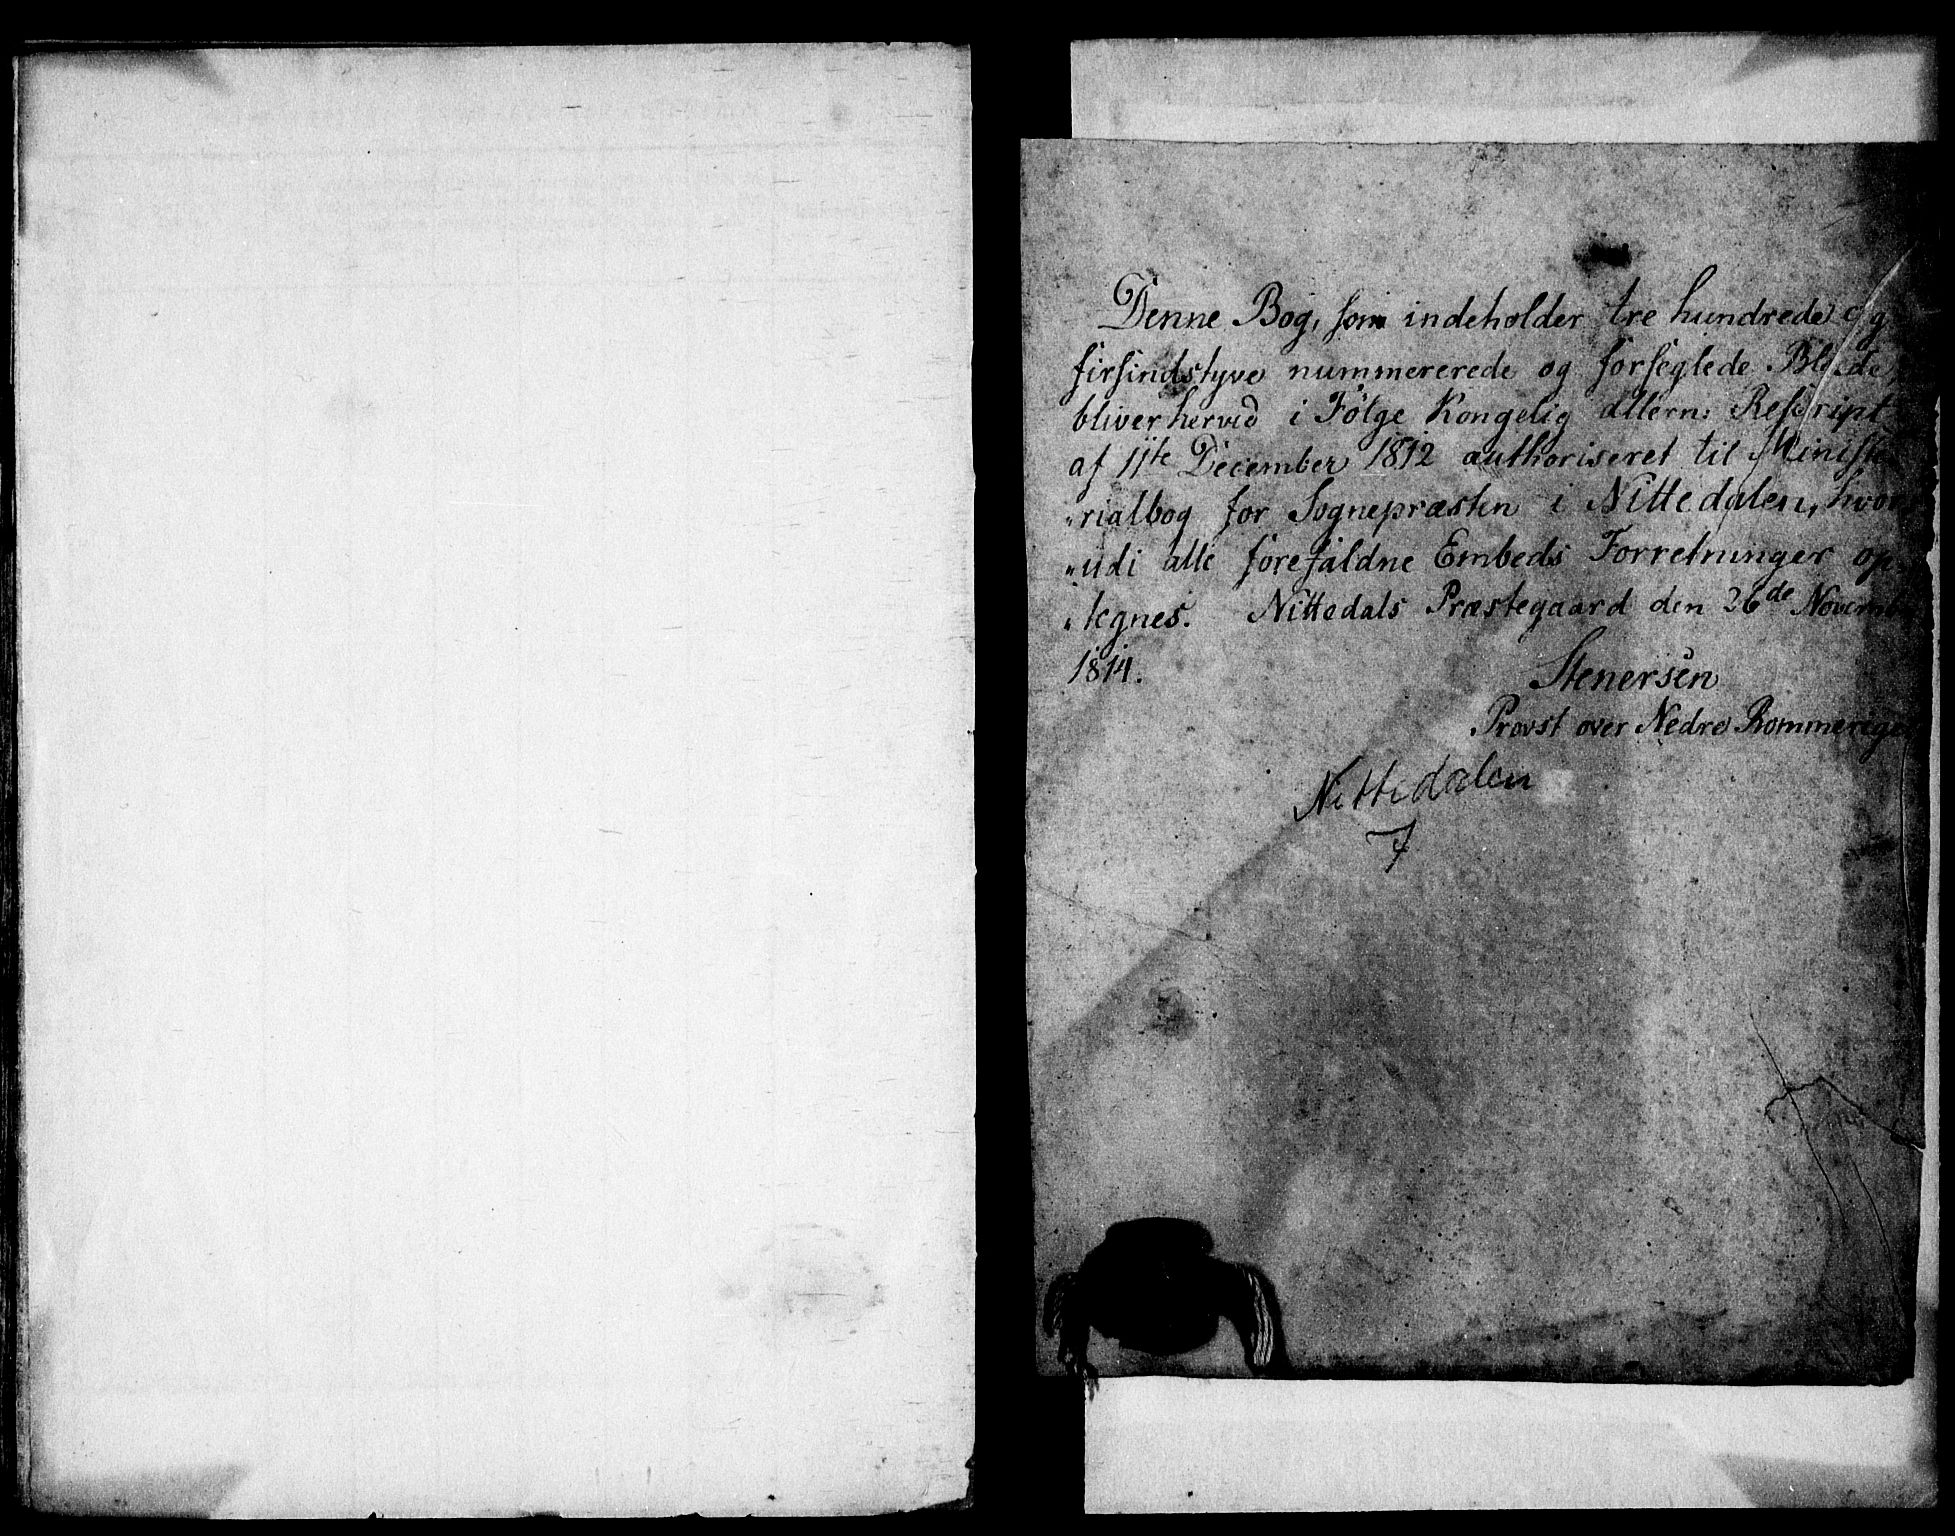 Denne Bog, som indeholder tre hundrede og
firsindstyve nummererede og forseglede Blade,
bliver herved i Følge Kongelig allern: Rescript
af 11te December 1812 authoriseret til Ministe
„rialbog for Sognepræsten i Nittedalen, hvor
„udi alle forefaldne Embeds Forretninger op
„tegnes. Nittedals Præstegaard den 26de Novemb
1814.
Stenersen
Provst over Nedre Rommerige
Nittedalen
7